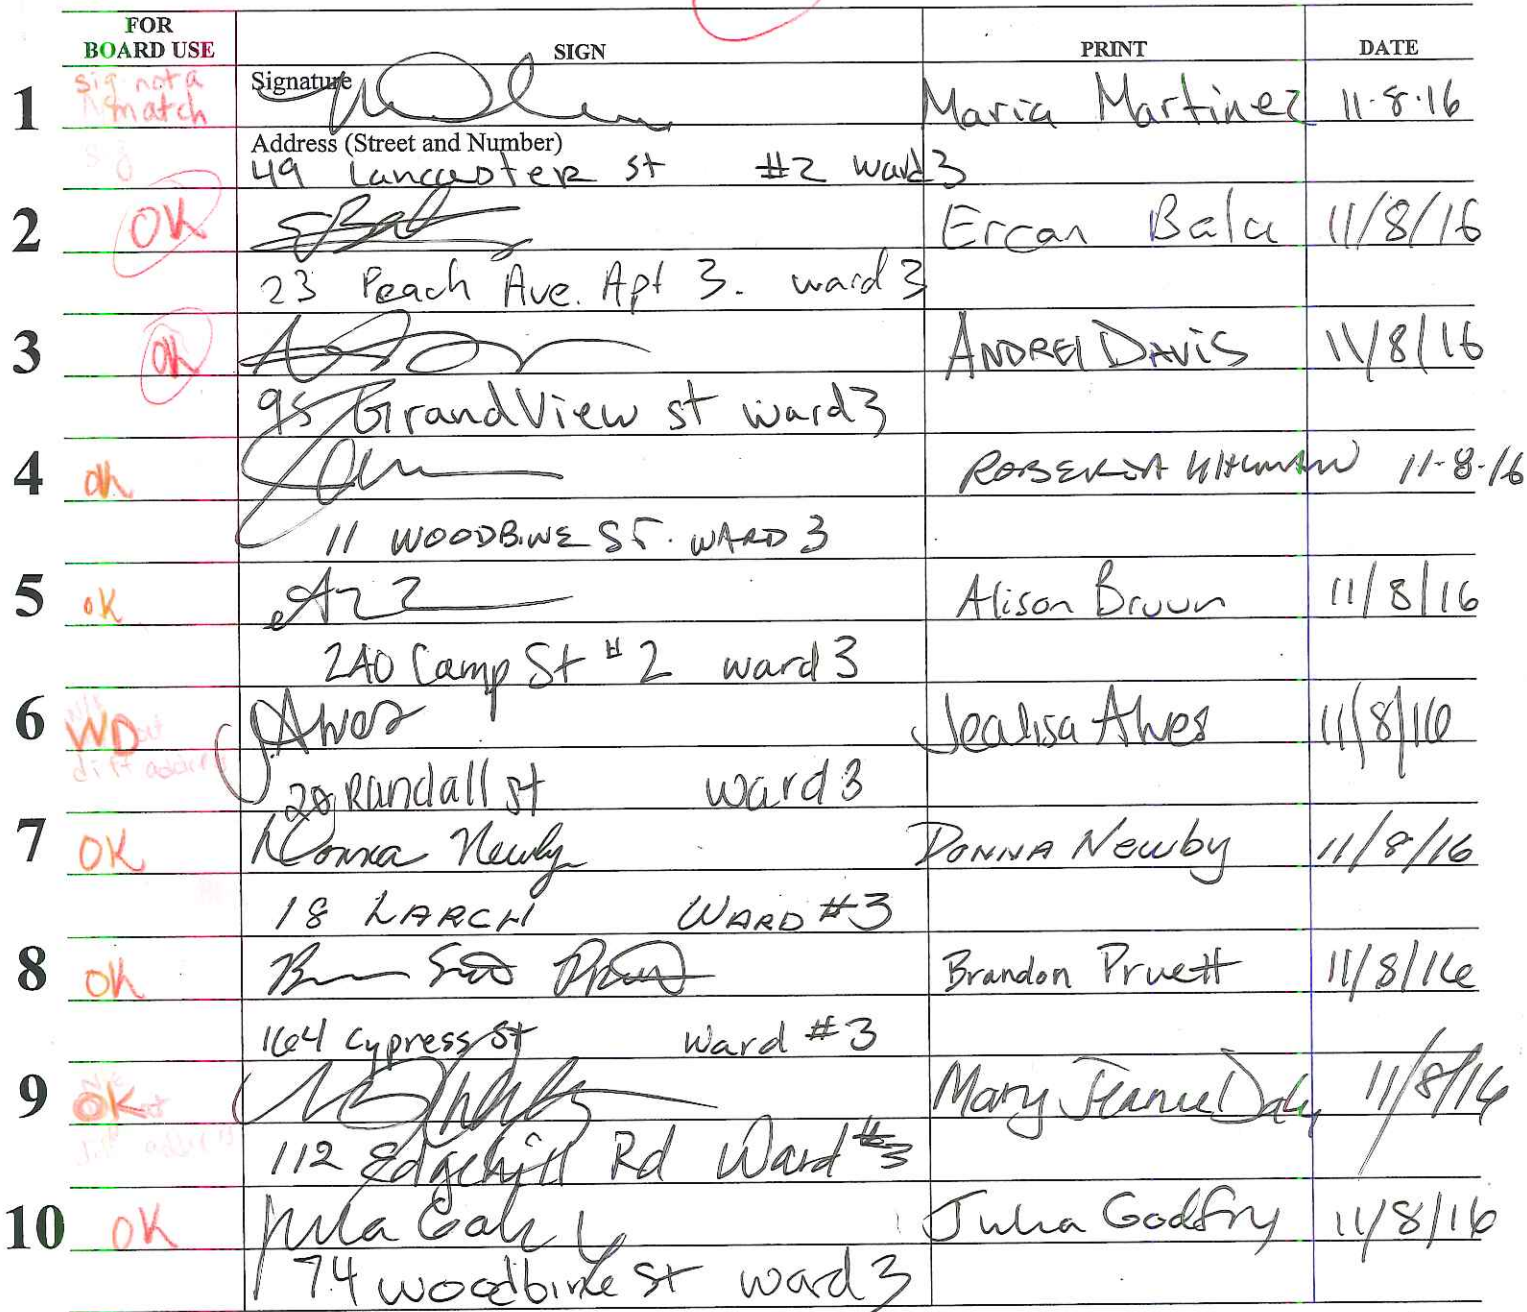 FOR
BOARD USE SIGN PRINT DATE
1 sig not a match Signature Maria Martinez 11-8-16
Address (Street and Number)
49 Lancaster st #2 ward 3
2 OK Ercan Bala 11/8/16
23 Peach Ave. Apt 3. ward 3
3 OK ANDREI DAVIS 11/8/16
95 GrandView st ward 3
4 ok ROBERTA 11-8-16
11 WOODBINE ST. WARD 3
5 OK Alison Bruun 11/8/16
240 Camp St #2 ward 3
6 WD diff address JAlves Jealisa Alves 11/8/16
Randall st ward 3
7 OK Donna Newby DONNA Newby 11/8/16
18 LARCH WARD #3
8 ok Brandon Pruett 11/8/16
164 Cypress St Ward #3
9 OK diff address Mary Jeanne Daly 11/8/16
112 Edgehill Rd Ward #3
10 OK Julia Godfry 11/8/16
74 woodbine st ward 3